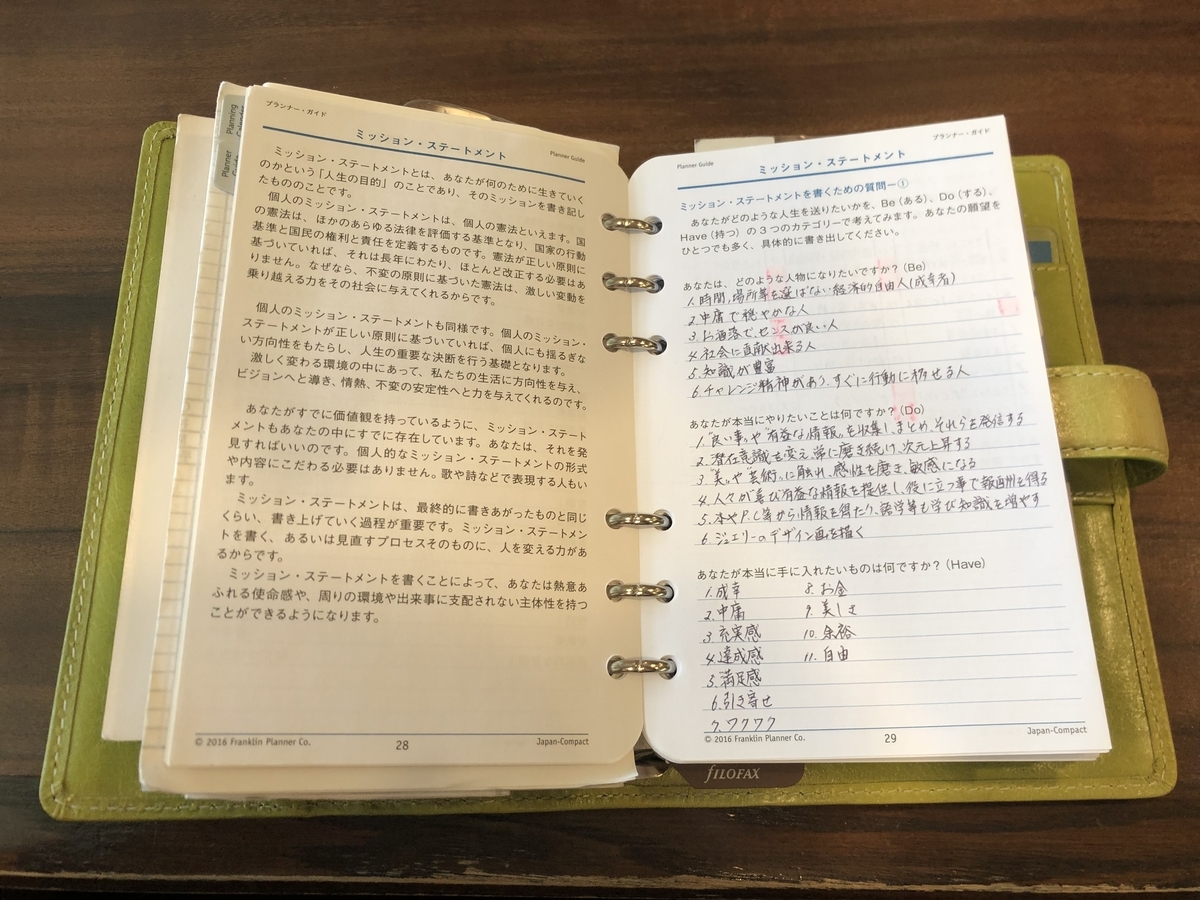 Planning
Calendar
Planner
Guide
プランナー・ガイド
ミッション・ステートメント
Planner Guide
ミッション・ステートメントとは、あなたが何のために生きていく
のかという「人生の目的」のことであり、そのミッションを書き記し
たもののことです。
個人のミッション・ステートメントは、個人の憲法といえます。国
の憲法は、ほかのあらゆる法律を評価する基準となり、国家の行動
基準と国民の権利と責任を定義するものです。憲法が正しい原則に
基づいていれば、それは長年にわたり、ほとんど改正する必要はあ
りません。なぜなら、不変の原則に基づいた憲法は、激しい変動を
乗り越える力をその社会に与えてくれるからです。
個人のミッション・ステートメントも同様です。個人のミッション・
ステートメントが正しい原則に基づいていれば、個人にも揺るぎな
い方向性をもたらし、人生の重要な決断を行う基礎となります。
激しく変わる環境の中にあって、私たちの生活に方向性を与え、
ビジョンへと導き、情熱、不変の安定性へと力を与えてくれるのです。
あなたがすでに価値観を持っているように、ミッション・ステート
メントもあなたの中にすでに存在しています。あなたは、それを発
見すればいいのです。個人的なミッション・ステートメントの形式
や内容にこだわる必要はありません。歌や詩などで表現する人もい
ます。
ミッション・ステートメントは、最終的に書きあがったものと同じ
くらい、書き上げていく過程が重要です。ミッション・ステートメン
トを書く、あるいは見直すプロセスそのものに、人を変える力があ
るからです。
ミッション・ステートメントを書くことによって、あなたは熱意あ
ふれる使命感や、周りの環境や出来事に支配されない主体性を持つ
ことができるようになります。
© 2016 Franklin Planner Co.
28
Japan-Compact
Planner Guide
ミッション・ステートメント
プランナー・ガイド
ミッション・ステートメントを書くための質問ー①
あなたがどのような人生を送りたいかを、Be（ある）、Do（する）、
Have（持つ）の3つのカテゴリーで考えてみます。あなたの願望を
ひとつでも多く、具体的に書き出してください。
あなたは、どのような人物になりたいですか？(Be)
1. 時間,場所等を選ばない経済的自由人(成幸者)
2. 中庸で穏やかな人
3. お洒落で、センスが良い人
4. 社会に貢献出来る人
5. 知識が豊富
6. チャレンジ精神があり、すぐに行動に移せる人
あなたが本当にやりたいことは何ですか？(Do)
1. "良い事"や"有益な情報"を収集し、まとめ、それらを発信する
2. 潜在意識を変え、常に磨き続け、次元上昇する
3. "美"や"芸術"に触れ、感性を磨き、敏感になる
4. 人々が喜び有益な情報を提供し、役に立つ事で報酬を得る
5. 本やP.C等から情報を得たり、語学等も学び知識を増やす
6. ジュエリーのデザイン画を描く
あなたが本当に手に入れたいものは何ですか？(Have)
1. 成幸
2. 中庸
3. 充実感
4. 達成感
5. 満足感
6. 引き寄せ
7. ワクワク
8. お金
9. 美しさ
10. 余裕
11. 自由
© 2016 Franklin Planner Co.
29
Japan-Compact
fILOFAX